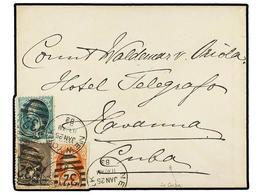 Count Waldemar v. Oriola
Hotel Telegrafo
Havanna
Cuba
JAN 25
83
JAN 25
83